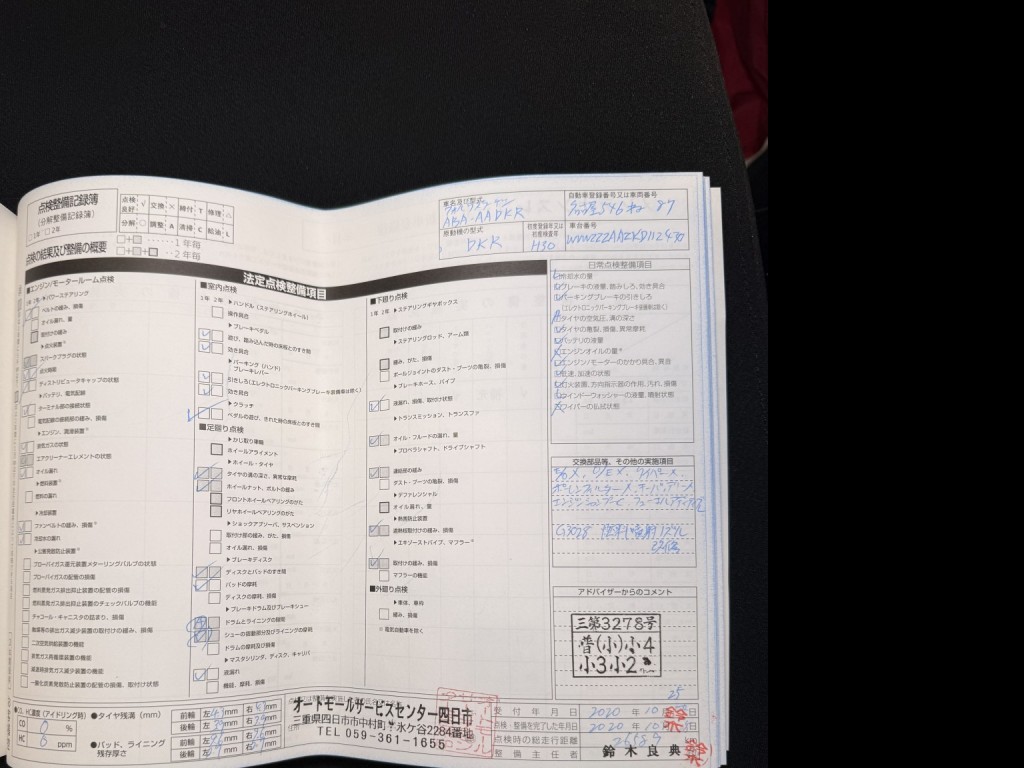 点検整備記録簿
(分解整備記録簿)
□1年 □2年
点検良好 √ 交換 × 締付 T 修理 △
分解 ○ 調整 A 清掃 C 給油 L
点検の結果及び整備の概要
□+□ ・・・・・・1年毎
□+□+□ ・・・2年毎
車名及び型式
ABA-AADKR
原動機の型式
DKR
初度登録年又は初度検査年
H30
自動車登録番号又は車両番号
名古屋546 ね 87
車台番号
法定点検整備項目
■エンジン/モータールーム点検
1年 2年 ▶パワーステアリング
ベルトの緩み、損傷
オイル漏れ、量
取付けの緩み
▶点火装置
スパークプラグの状態
点火時期
ディストリビュータキャップの状態
▶バッテリ、電気配線
ターミナル部の接続状態
電気配線の接続部の緩み、損傷
▶エンジン、潤滑装置
排気ガスの状態
エアクリーナーエレメントの状態
オイル漏れ
▶燃料装置
燃料の漏れ
▶冷却装置
ファンベルトの緩み、損傷
冷却水の漏れ
▶公害発散防止装置
ブローバイガス還元装置メターリングバルブの状態
ブローバイガスの配管の損傷
燃料蒸発ガス排出抑止装置の配管の損傷
燃料蒸発ガス排出抑止装置のチェックバルブの機能
チャコール・キャニスタの詰まり、損傷
触媒等の排出ガス減少装置の取付けの緩み、損傷
二次空気供給装置の機能
排気ガス再循環装置の機能
減速時排気ガス減少装置の機能
一酸化炭素発散防止装置の配管の損傷、取付け状態
■室内点検
1年 2年 ▶ハンドル (ステアリングホイール)
操作具合
▶ブレーキペダル
遊び、踏み込んだ時の床板とのすき間
効き具合
▶パーキング (ハンド) ブレーキレバー
引きしろ(エレクトロニックパーキングブレーキ装着車は除く)
効き具合
▶クラッチ
ペダルの遊び、きれた時の床板とのすき間
■足廻り点検
▶かじ取り車輪
ホイールアライメント
▶ホイール・タイヤ
タイヤの溝の深さ、異常な摩耗
ホイールナット、ボルトの緩み
フロントホイールベアリングのがた
リヤホイールベアリングのがた
▶ショックアブソーバ、サスペンション
取付け部の緩み、がた、損傷
オイル漏れ、損傷
▶ブレーキディスク
ディスクとパッドのすき間
パッドの摩耗
ディスクの摩耗、損傷
▶ブレーキドラム及びブレーキシュー
ドラムとライニングの隙間
シューの摺動部分及びライニングの摩耗
ドラムの摩耗及び損傷
▶マスタシリンダ、ディスク、キャリパ
液漏れ
機能、摩耗、損傷
■下廻り点検
1年 2年 ▶ステアリングギヤボックス
取付けの緩み
▶ステアリングロッド、アーム類
緩み、がた、損傷
ボールジョイントのダスト・ブーツの亀裂、損傷
▶ブレーキホース、パイプ
液漏れ、損傷、取付け状態
▶トランスミッション、トランスファ
オイル・フルードの漏れ、量
▶プロペラシャフト、ドライブシャフト
連結部の緩み
ダスト・ブーツの亀裂、損傷
▶デファレンシャル
オイル漏れ、量
▶熱害防止装置
遮熱板取付けの緩み、損傷
▶エキゾーストパイプ、マフラー
取付けの緩み、損傷
マフラーの機能
■外廻り点検
▶車体、車枠
緩み、損傷
※ 電気自動車を除く
日常点検整備項目
冷却水の量
ブレーキの液量、踏みしろ、効き具合
パーキングブレーキの引きしろ
(エレクトロニックパーキングブレーキ装着車は除く)
タイヤの空気圧、溝の深さ
タイヤの亀裂、損傷、異常摩耗
バッテリの液量
エンジンオイルの量
エンジン/モーターのかかり具合、異音
低速、加速の状態
灯火装置、方向指示器の作用、汚れ、損傷
ウインドーウォッシャーの液量、噴射状態
ワイパーの払拭状態
交換部品等、その他の実施項目
アドバイザーからのコメント
三第3278号
普(小)小4
小3小2
25
●CO、HC濃度(アイドリング時)
CO 0 %
HC 8 ppm
●タイヤ残溝 (mm)
前輪 左 mm 右 mm
後輪 左 mm 右 mm
●パッド、ライニング残存厚さ
前輪 左 mm 右 mm
後輪 左 mm 右 mm
オートモールサービスセンター四日市
三重県四日市市中村町字氷ケ谷2284番地
TEL 059-361-1655
受付年月日 2020 年 10
点検・整備を完了した年月日 2020 年 10
点検時の総走行距離
整備主任者 鈴木良典